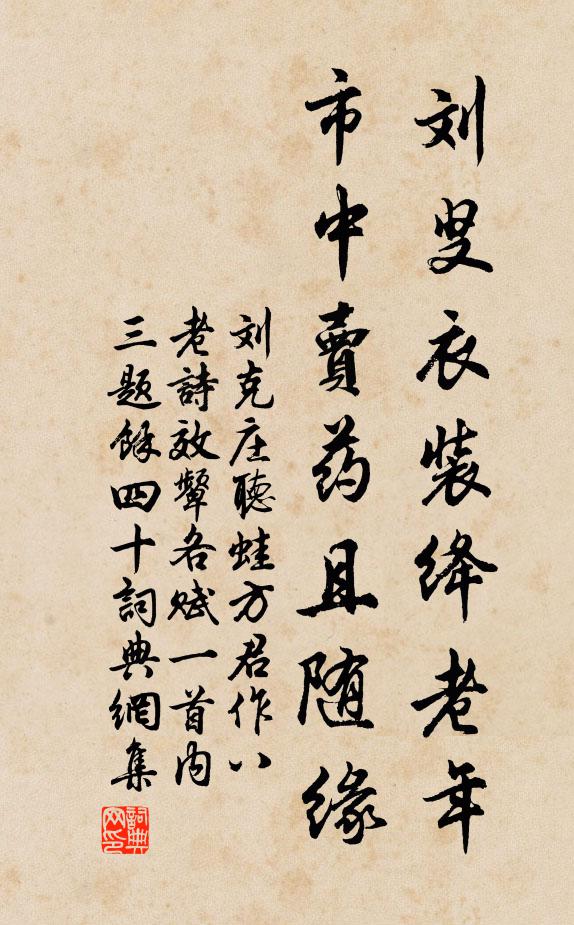 刘叟衣装绛老年
市中賣药且随缘
刘克庄聴蛙方君作八
老詩效颦各赋一首内
三题餘四十詞典網集
詞典网印